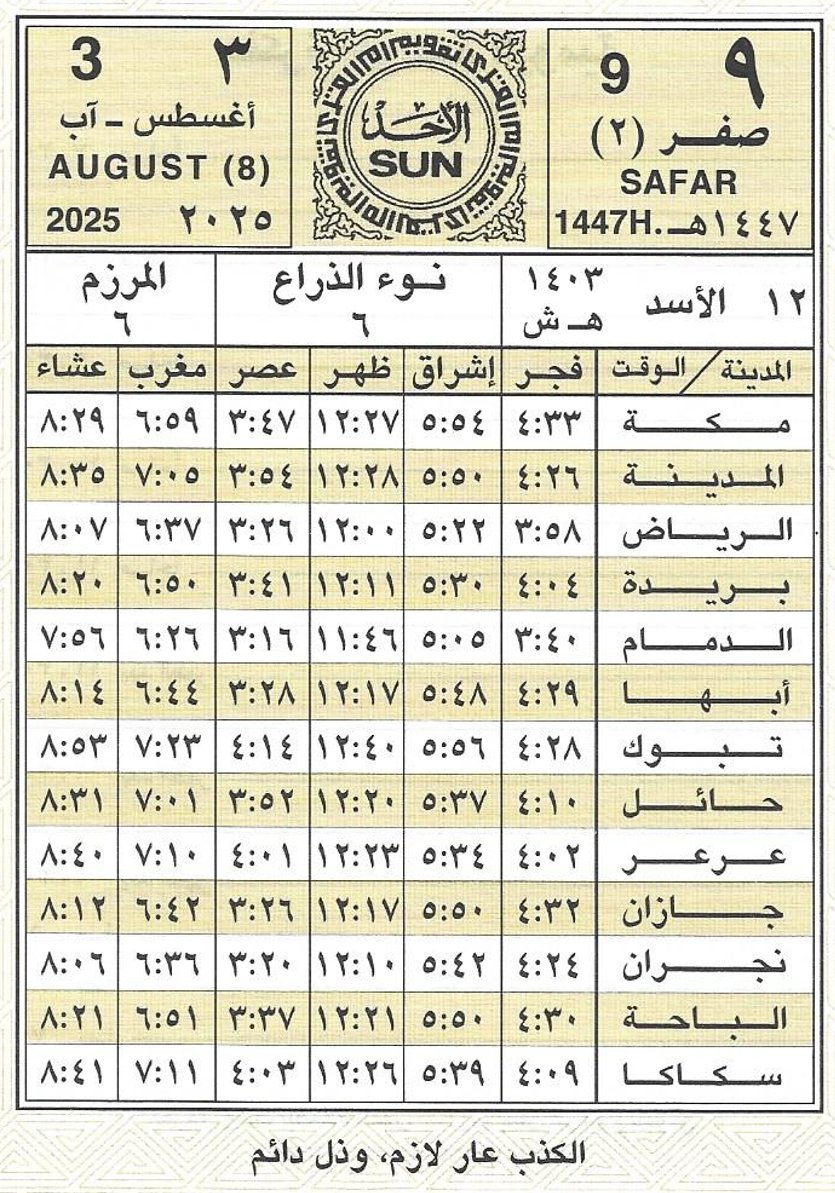 ٩ 9
صفر (٢)
SAFAR
١٤٤٧هـ. 1447H
الأحد
SUN
٣ 3
أغسطس - آب
AUGUST (8)
2025 ٢٠٢٥
١٢ الأسد ١٤٠٣ هـ ش
نوء الذراع ٦
المرزم ٦
المدينة / الوقت فجر إشراق ظهر عصر مغرب عشاء
مكة ٤:٣٣ ٥:٥٤ ١٢:٢٧ ٣:٤٧ ٦:٥٩ ٨:٢٩
المدينة ٤:٢٦ ٥:٥٠ ١٢:٢٨ ٣:٥٤ ٧:٠٥ ٨:٣٥
الرياض ٣:٥٨ ٥:٢٢ ١٢:٠٠ ٣:٢٦ ٦:٣٧ ٨:٠٧
بريدة ٤:٠٤ ٥:٣٠ ١٢:١١ ٣:٤١ ٦:٥٠ ٨:٢٠
الدمام ٣:٤٠ ٥:٠٥ ١١:٤٦ ٣:١٦ ٦:٢٦ ٧:٥٦
أبها ٤:٢٩ ٥:٤٨ ١٢:١٧ ٣:٢٨ ٦:٤٤ ٨:١٤
تبوك ٤:٢٨ ٥:٥٦ ١٢:٤٠ ٤:١٤ ٧:٢٣ ٨:٥٣
حائل ٤:١٠ ٥:٣٧ ١٢:٢٠ ٣:٥٢ ٧:٠١ ٨:٣١
عرعر ٤:٠٢ ٥:٣٤ ١٢:٢٣ ٤:٠١ ٧:١٠ ٨:٤٠
جازان ٤:٣٢ ٥:٥٠ ١٢:١٧ ٣:٢٦ ٦:٤٢ ٨:١٢
نجران ٤:٢٤ ٥:٤٢ ١٢:١٠ ٣:٢٠ ٦:٣٦ ٨:٠٦
الباحة ٤:٣٠ ٥:٥٠ ١٢:٢١ ٣:٣٧ ٦:٥١ ٨:٢١
سكاكا ٤:٠٩ ٥:٣٩ ١٢:٢٦ ٤:٠٣ ٧:١١ ٨:٤١
الكذب عار لازم، وذل دائم